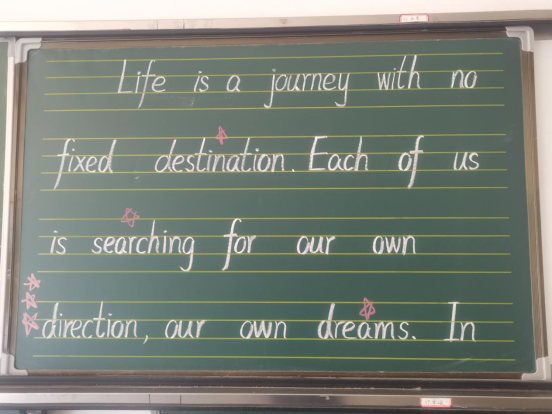 Life is a journey with no
fixed destination. Each of us
is searching for our own
direction, our own dreams. In